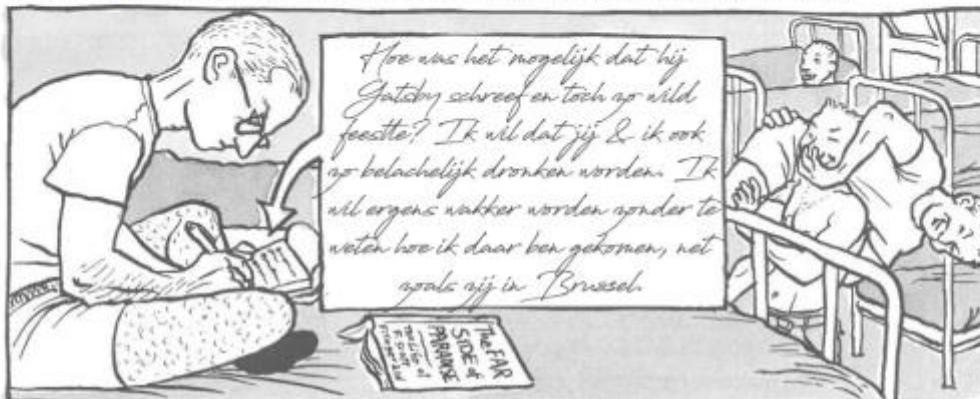 Hoe was het mogelijk dat hij
Gatsby schreef en toch zo wild
feestte? Ik wil dat jij & ik ook
zo belachelijk dronken worden. Ik
wil ergens wakker worden zonder te
weten hoe ik daar ben gekomen, net
zoals zij in Brussel.
The FAR
SIDE of
PARADISE
The Life of
F. Scott
Fitzgerald